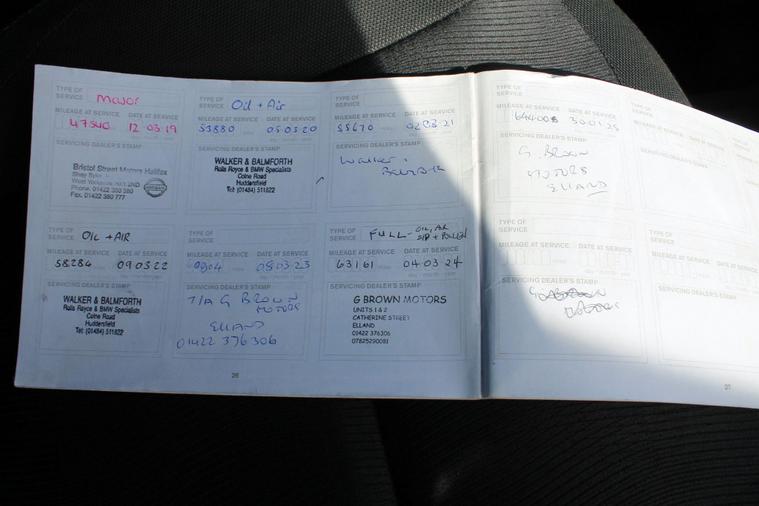 TYPE OF
SERVICE Major
MILEAGE AT SERVICE DATE AT SERVICE
47540 12 03 19
SERVICING DEALER'S STAMP
Bristol Street Motors Halifax
Phone. 01422 380 380
Fax. 01422 380 777
TYPE OF
SERVICE Oil + Air
MILEAGE AT SERVICE DATE AT SERVICE
53880 05 03 20
SERVICING DEALER'S STAMP
WALKER & BALMFORTH
Rolls Royce & BMW Specialists
Colne Road
Huddersfield
Tel: (01484) 511822
TYPE OF
SERVICE
MILEAGE AT SERVICE DATE AT SERVICE
55670 21
SERVICING DEALER'S STAMP
Walker
TYPE OF
SERVICE OIL + AIR
MILEAGE AT SERVICE DATE AT SERVICE
58284 09 03 22
SERVICING DEALER'S STAMP
WALKER & BALMFORTH
Rolls Royce & BMW Specialists
Colne Road
Huddersfield
Tel: (01484) 511822
TYPE OF
SERVICE
MILEAGE AT SERVICE DATE AT SERVICE
03 23
SERVICING DEALER'S STAMP
T/A G BROWN
MOTORS
ELLAND
01422 376306
TYPE OF
SERVICE FULL - OIL, AIR
+ POLLEN
MILEAGE AT SERVICE DATE AT SERVICE
63161 04 03 24
SERVICING DEALER'S STAMP
G BROWN MOTORS
UNITS 1 & 2
CATHERINE STREET
ELLAND
01422 376306
07825290081
26
TYPE OF
SERVICE
MILEAGE AT SERVICE DATE AT SERVICE
30 01 25
SERVICING DEALER'S STAMP
G. BROWN
MOTORS
ELLAND
TYPE OF
SERVICE
MILEAGE AT SERVICE
SERVICING DEALER'S STAMP
TYPE OF
SERVICE
MILEAGE AT SERVICE DATE AT SERVICE
SERVICING DEALER'S STAMP
TYPE OF
SERVICE
MILEAGE AT SERVICE
SERVICING DEALER'S STAMP
27